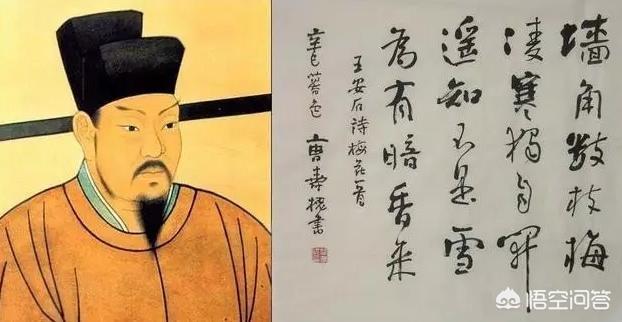 墙角数枝梅
凌寒独自開
遥知不是雪
為有暗香来
王安石诗梅花一首
辛巳
悟空问答